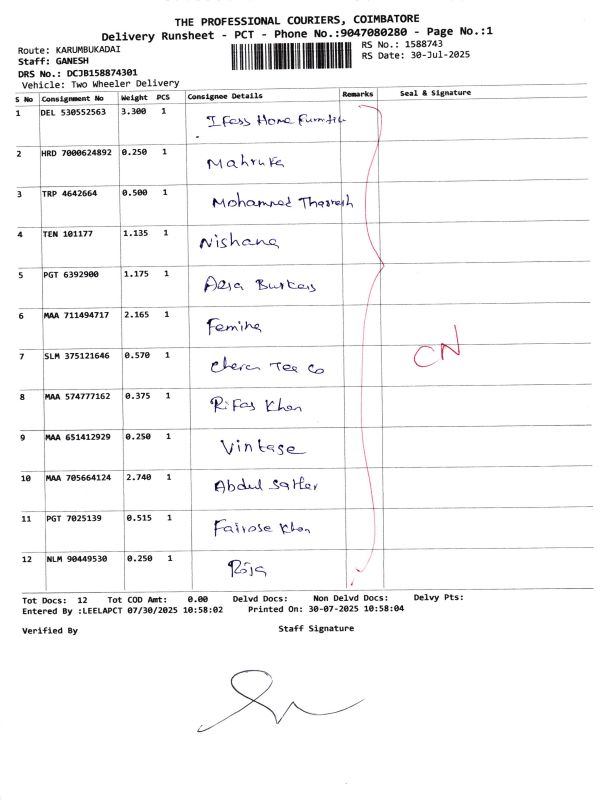 THE PROFESSIONAL COURIERS, COIMBATORE
Delivery Runsheet - PCT - Phone No.:9047080280 - Page No.:1
Route: KARUMBUKADAI
RS No.: 1588743
Staff: GANESH
RS Date: 30-Jul-2025
DRS No.: DCJB158874301
Vehicle: Two Wheeler Delivery
S No Consignment No Weight PCS Consignee Details Remarks Seal & Signature
1 DEL 530552563 3.300 1 Home
2 HRD 7000624892 0.250 1 Mahruka
3 TRP 4642664 0.500 1 Mohammed
4 TEN 101177 1.135 1 Nishana
5 PGT 6392900 1.175 1
6 MAA 711494717 2.165 1 Femina
7 SLM 375121646 0.570 1 Cheran Tea Co
CN
8 MAA 574777162 0.375 1 Rifas Khan
9 MAA 651412929 0.250 1 Vintage
10 MAA 705664124 2.740 1 Abdul
11 PGT 7025139 0.515 1 Fairose Khan
12 NLM 90449530 0.250 1 Roja
Tot Docs: 12 Tot COD Amt: 0.00 Delvd Docs: Non Delvd Docs: Delvy Pts:
Entered By :LEELAPCT 07/30/2025 10:58:02 Printed On: 30-07-2025 10:58:04
Verified By Staff Signature